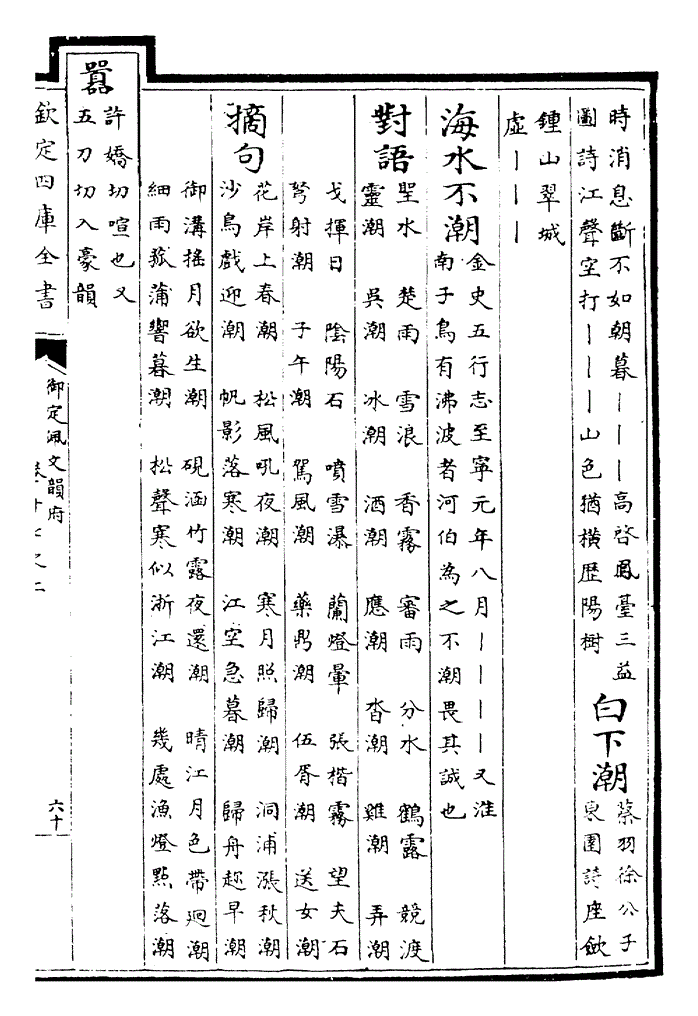 時消息斷不如朝暮丨丨丨高啓鳳臺三益
圖詩江聲空打丨丨丨山色猶橫歴陽樹
白下潮
蔡羽徐公子
東園詩座斂
鍾山翠城
虛丨丨丨
海水不潮
金史五行志至寧元年八月丨丨丨丨又淮
南子鳥有沸波者河伯為之不潮畏其誠也
對語
聖水 楚雨 雪浪 香霧 審雨 分水 鶴露 競渡
靈潮 吳潮 冰潮 酒潮 應潮 沓潮 雞潮 弄潮
戈揮日 陰陽石 噴雪瀑 蘭燈暈 張楷霧 望夫石
弩射潮 子午潮 駕風潮 藥鼎潮 伍胥潮 送女潮
摘句
花岸上春潮 松風吼夜潮 寒月照歸潮 洞浦漲秋潮
沙鳥戲迎潮 帆影落寒潮 江空急暮潮 歸舟趂早潮
御溝摇月欲生潮 硯涵竹露夜還潮 晴江月色帶廻潮
細雨菰蒲響暮潮 松聲寒似浙江潮 幾處漁燈點落潮
囂
許嬌切喧也又
五刀切入豪韻
欽定四庫全書
御定佩文韻府
卷十七之二
六十